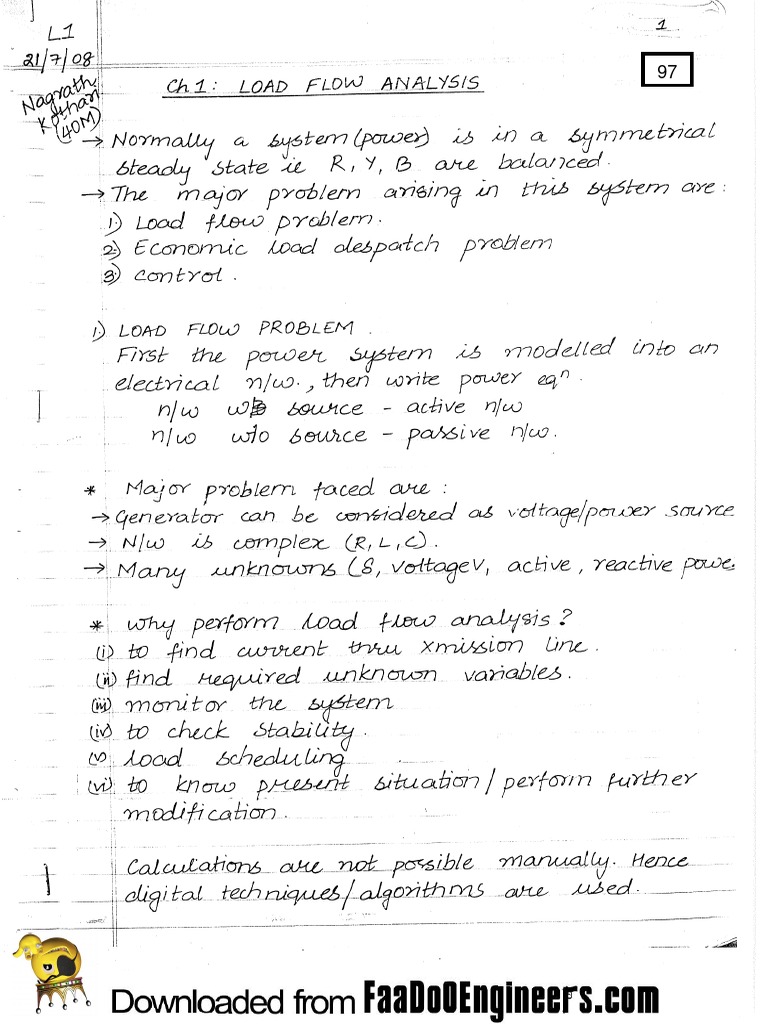 L1
1
21/7/08
97
Nagrath
Kothari
(40M)
Ch 1: LOAD FLOW ANALYSIS
→ Normally a system (power) is in a symmetrical
steady state ie R, Y, B are balanced.
→ The major problem arising in this system are:
1) Load flow problem.
2) Economic load despatch problem
3) control.
1) LOAD FLOW PROBLEM.
First the power system is modelled into an
electrical n/w., then write power eqn.
n/w w source - active n/w
n/w w/o source - passive n/w.
* Major problem faced are:
→ Generator can be considered as voltage/power source
→ N/w is complex (R, L, C).
→ Many unknowns (δ, voltage V, active, reactive powe
* why perform load flow analysis?
(i) to find current thru xmission line.
(ii) find required unknown variables.
(iii) monitor the system
(iv) to check stability.
(v) load scheduling
(vi) to know present situation/perform further
modification.
Calculations are not possible manually. Hence
digital techniques/algorithms are used.
Downloaded from FaaDoOEngineers.com